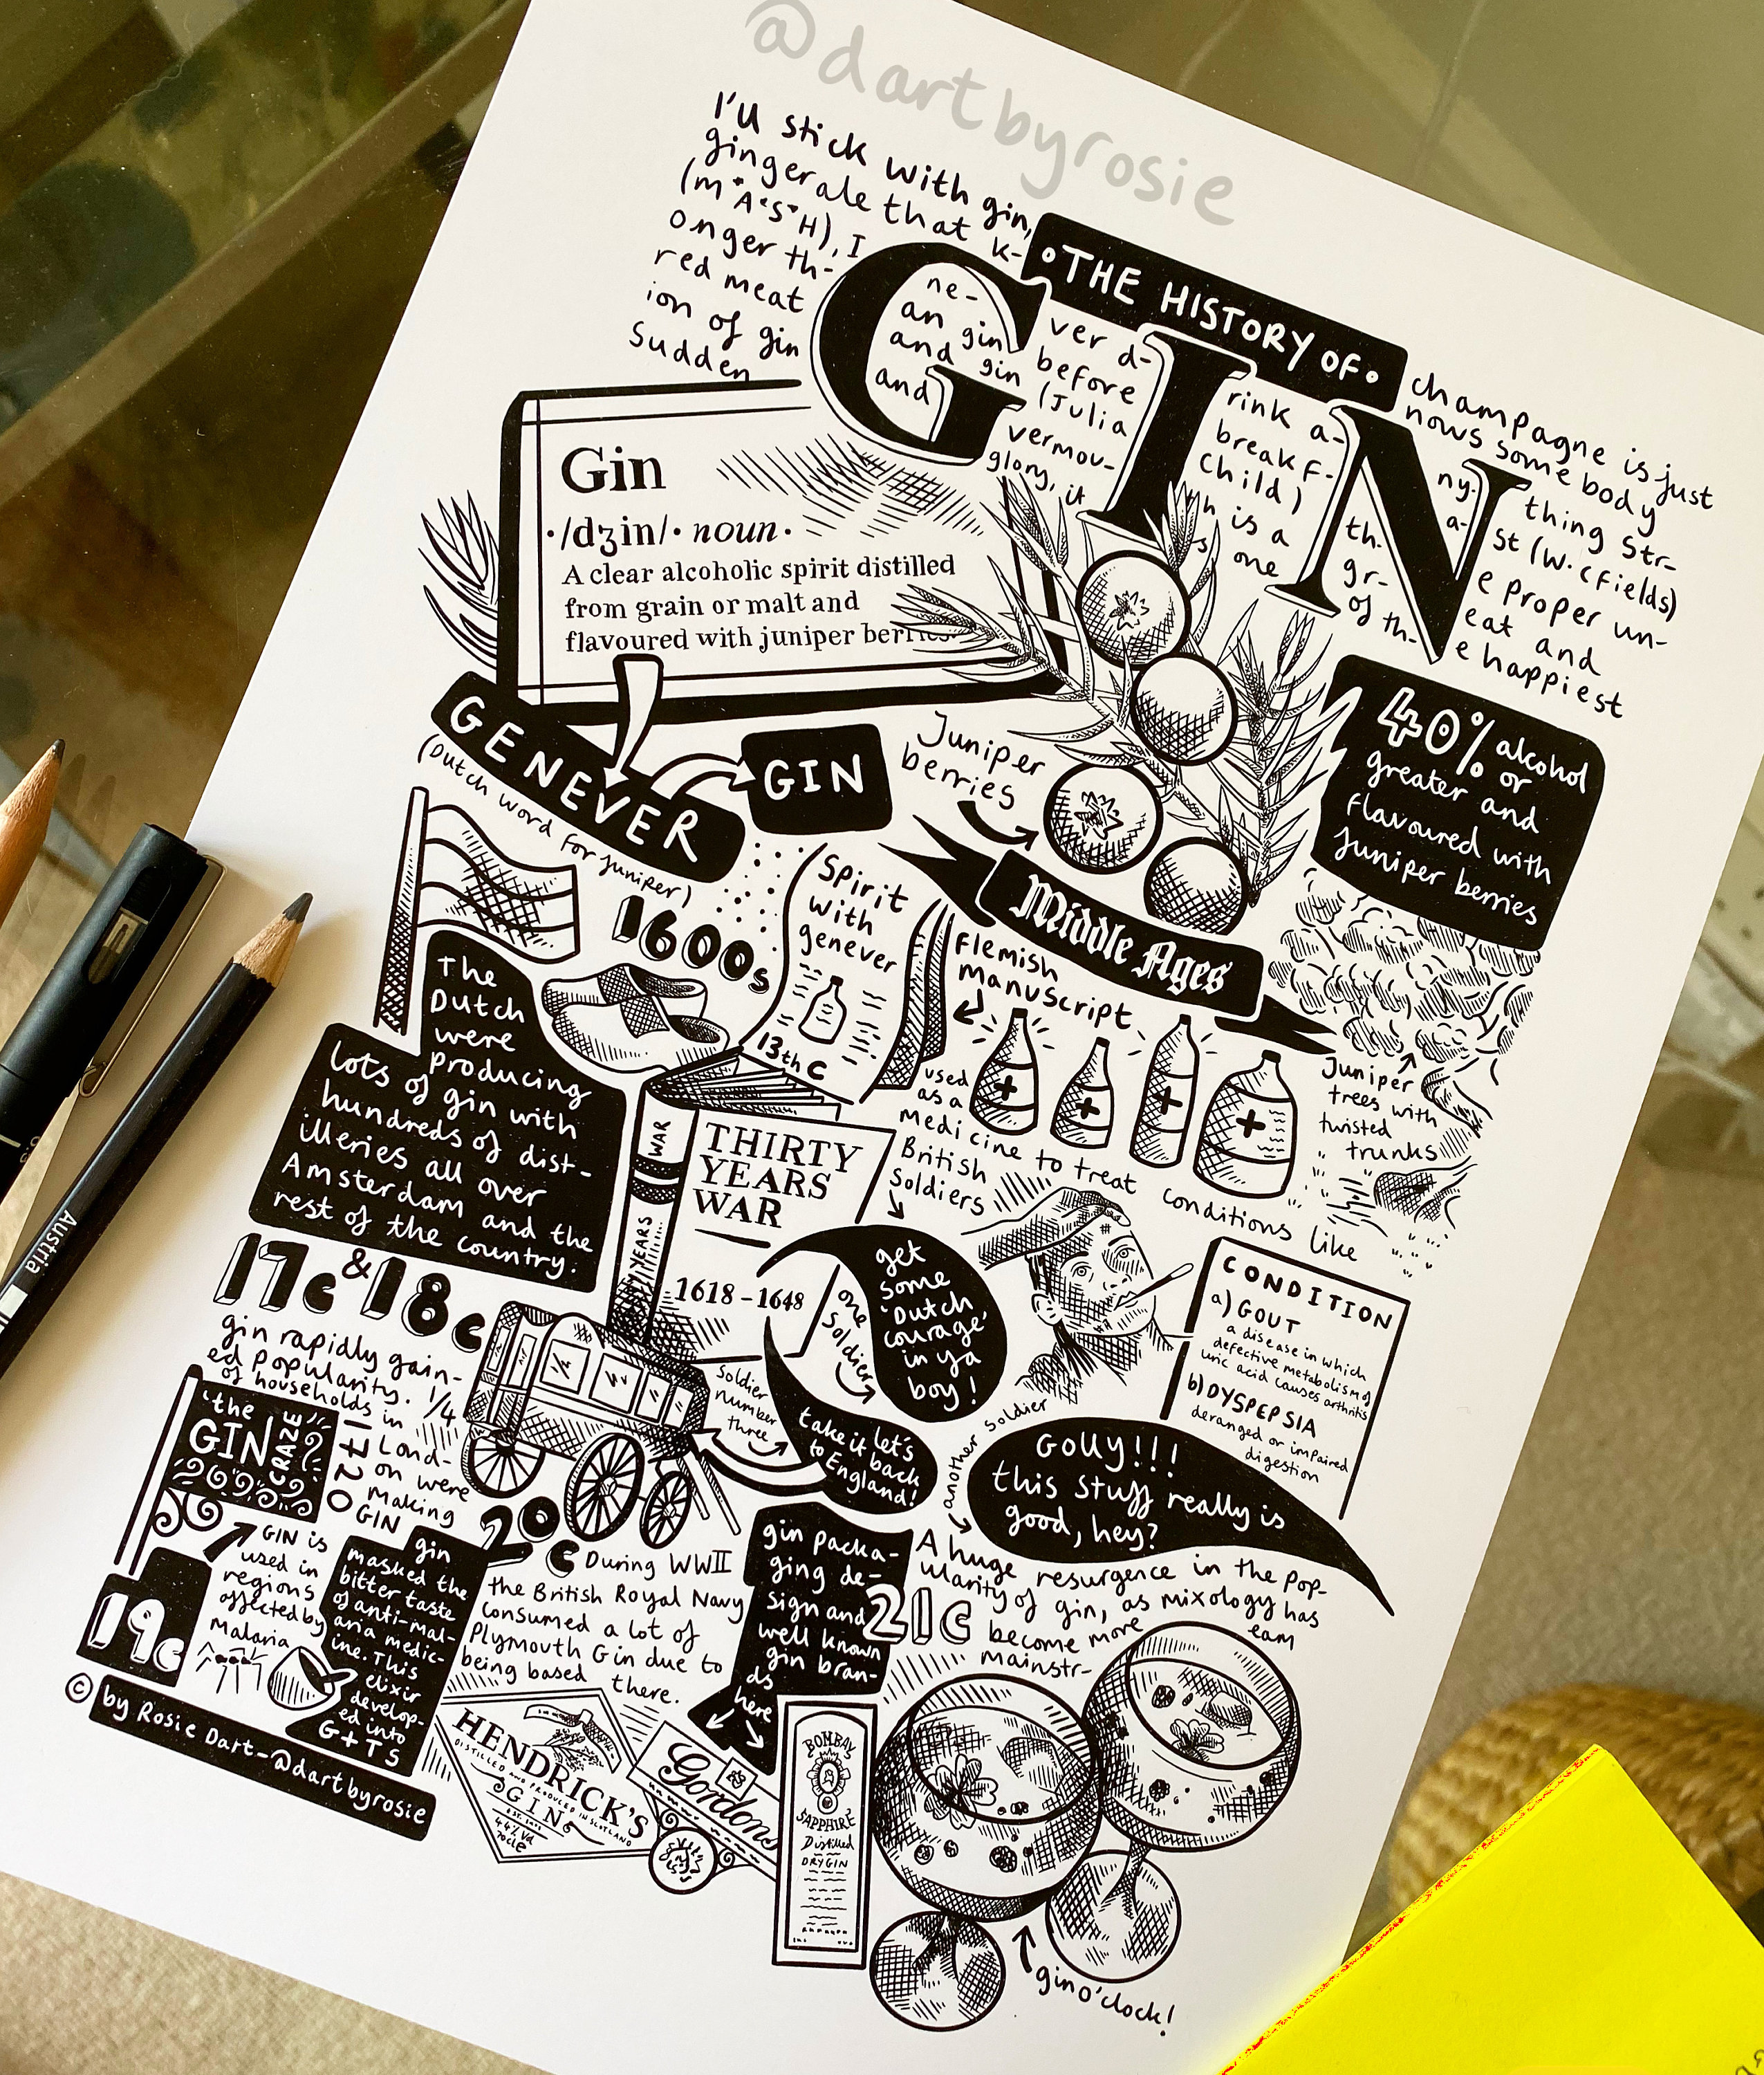 @dartbyrosie
I'll stick with gin, champagne is just
ginger ale that k- nows somebody
(M*A*S*H), I ne- ver d- rink a- ny- thing str-
onger th- an gin before breakf- a- st (W.C Fields)
red meat and gin (Julia Child) th- e proper un-
ion of gin and vermou- h is a gr- eat and
sudden glory, it s one of th- e happiest
•THE HISTORY OF•
GIN
Gin
·/dʒin/· noun·
A clear alcoholic spirit distilled
from grain or malt and
flavoured with juniper berries
GENEVER
(Dutch word for juniper)
GIN
Juniper
berries
40% alcohol
or
greater and
flavoured with
juniper berries
1600s
The
Dutch
were
producing
lots of gin with
hundreds of dist-
illeries all over
Amsterdam and the
rest of the country.
Spirit
with
genever
13th C
Middle Ages
Flemish
manuscript
used
as a
medicine to treat conditions like
Juniper
trees with
twisted
trunks
CONDITION
a) GOUT
a disease in which
defective metabolism of
uric acid causes arthritis
b) DYSPEPSIA
deranged or impaired
digestion
WAR
YEARS
THIRTY
YEARS
WAR
1618-1648
British
Soldiers
one
Soldier
get
some
'Dutch
courage'
in ya
boy!
another soldier
Golly!!!
this stuff really is
good, hey?
Soldier
number
three
let's
take it back
to England!
17c & 18c
gin rapidly gain-
ed popularity. 1/4
of households in
Lond-
on were
making
GIN
1720
'the
GIN
CRAZE'
19c
GIN is
used in
regions
affected by
Malaria
gin
masked the
bitter taste
of anti-mal-
aria medic-
ine. This
elixir
develop-
ed into
G+TS
20c
During WWII
the British Royal Navy
consumed a lot of
Plymouth Gin due to
being based there.
gin packa-
ging de-
sign and
well known
gin bran-
ds
here
21c
A huge resurgence in the pop-
ularity of gin, as mixology has
become more
mainstr-
eam
HENDRICK'S
DISTILLED AND PRODUCED IN SCOTLAND
GIN
44% Vol
70cle
Gordons
BOMBAY
SAPPHIRE
Distilled
DRY GIN
gin o'clock!
© by Rosie Dart-@dartbyrosie
Austria